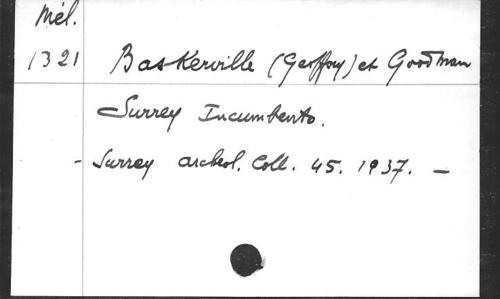 Mél.
1321 Baskerville (Geoffroy) et Goodman
Surrey Incumbents.
- Surrey archeol. Coll. 45. 1937. -